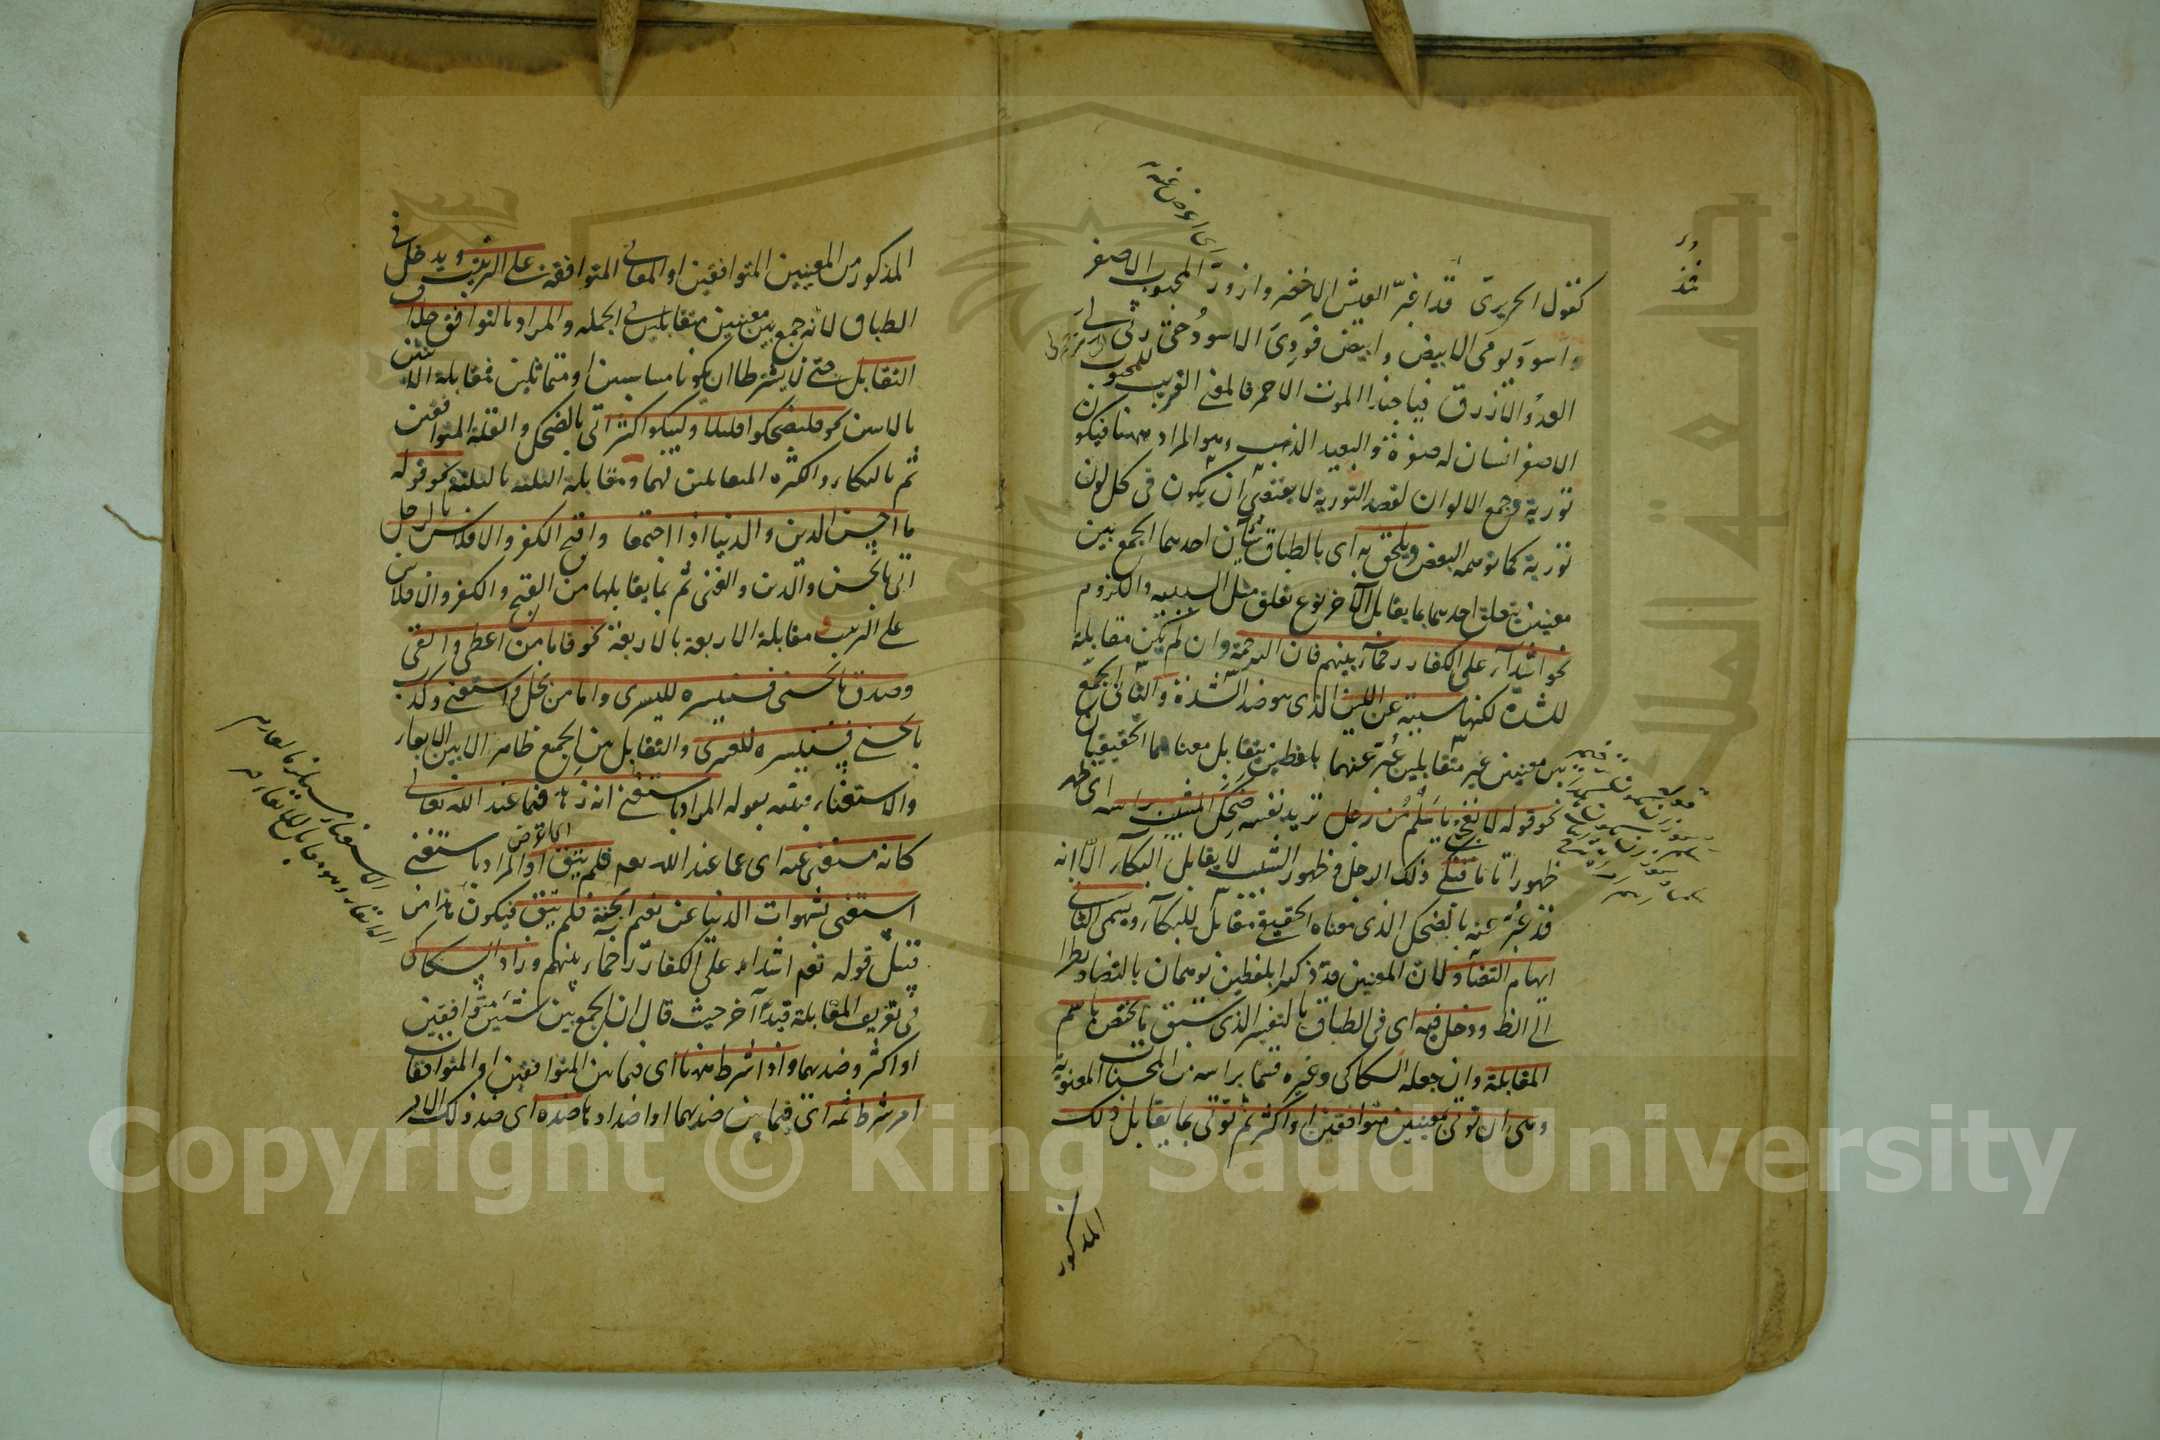 كقول الحريرى فمذ اغبرّ العيش الاخضر وازورّ المحبوب الاصفر
واسودّ يومى الابيض وابيضّ فودى الاسود حتى رثى لى
العدوّ الازرق فيا حبذا الموت الاحمر فالمعنى القريب للمحبوب
الاصفر انسان له صفرة والبعيد الذهب وهو المراد ههنا فيكون
تورية وجمع الالوان لقصد التورية لا يقتضى ان يكون فى كل لون
تورية كما توهمه البعض ويلحق به اى بالطباق شيئان احدهما الجمع بين
معنيين يتعلق احدهما بما يقابل الآخر نوع تعلق مثل السببية واللزوم
نحو اشدآء على الكفار رحمآء بينهم فان الرحمة وان لم يكن مقابلة
للشدة لكنها مسببة عن اللين الذى هو ضد الشدة والثانى الجمع
بين معنيين غير متقابلين عبّر عنهما بلفظين يتقابل معناهما الحقيقيان
نحو قوله لا تعجبى يا سلم من رجل تريد نفسه ضحك المشيب براسه اى ظهر
ظهورا تاما فبكى ذلك الرجل فظهور الشيب لا يقابل البكآء الا انه
قد عبّر عنه بالضحك الذى معناه الحقيقى مقابل للبكآء ويسمى الثانى
ايهام التضاد لان المعنيين قد ذكرا بلفظين يوهمان بالتضاد نظرا
الى الظ ودخل فيه اى فى الطباق بالتفسير الذى سبق ما يختص باسم
المقابلة وان جعله السكاكى وغيره قسما براسه من المحسنات المعنوية
وهى ان يؤتى بمعنيين متوافقين او اكثر ثم يؤتى بما يقابل ذلك
المذكور
المذكور من المعنيين المتوافقين او المعانى المتوافقة على الترتيب ويدخل فى
الطباق لانه جمع بين معنيين متقابلين فى الجملة والمراد بالتوافق خلاف
التقابل حتى لا يشترط ان يكونا متناسبين او متماثلين فمقابلة الاثنين
بالاثنين نحو فليضحكوا قليلا وليبكوا كثيرا اتى بالضحك والقلة المتوافقين
ثم بالبكاء والكثرة المتقابلين لهما ومقابلة الثلثة بالثلثة نحو قوله
ما احسن الدين والدنيا اذا اجتمعا واقبح الكفر والافلاس بالرجل
اتى بالحسن والدين والغنى ثم بما يقابلها من القبح والكفر والافلاس
على الترتيب ومقابلة الاربعة بالاربعة نحو فاما من اعطى واتقى
وصدق بالحسنى فسنيسره لليسرى واما من بخل واستغنى وكذب
بالحسنى فسنيسره للعسرى والتقابل بين الجميع ظاهر الا بين الاتقاء
والاستغناء فبينه بقوله المراد باستغنى انه زهد فيما عند الله تعالى
كانه مستغنى عنه اى عما عند الله تعم فلم يتق او المراد باستغنى
استغنى بشهوات الدنيا عن نعيم الجنة فلم يتق فيكون هذا من
قبيل قوله تعم اشداء على الكفار رحمآء بينهم وزاد السكاكى
فى تعريف المقابلة قيدا آخر حيث قال ان الجمع بين شيئين متوافقين
او اكثر وضديهما واذا شرط ههنا اى فيما بين المتوافقين او المتوافقات
امر شرط ثمه اى فيما بين ضديهما او اضدادها ضده اى ضد ذلك الامر
Copyright © King Saud University